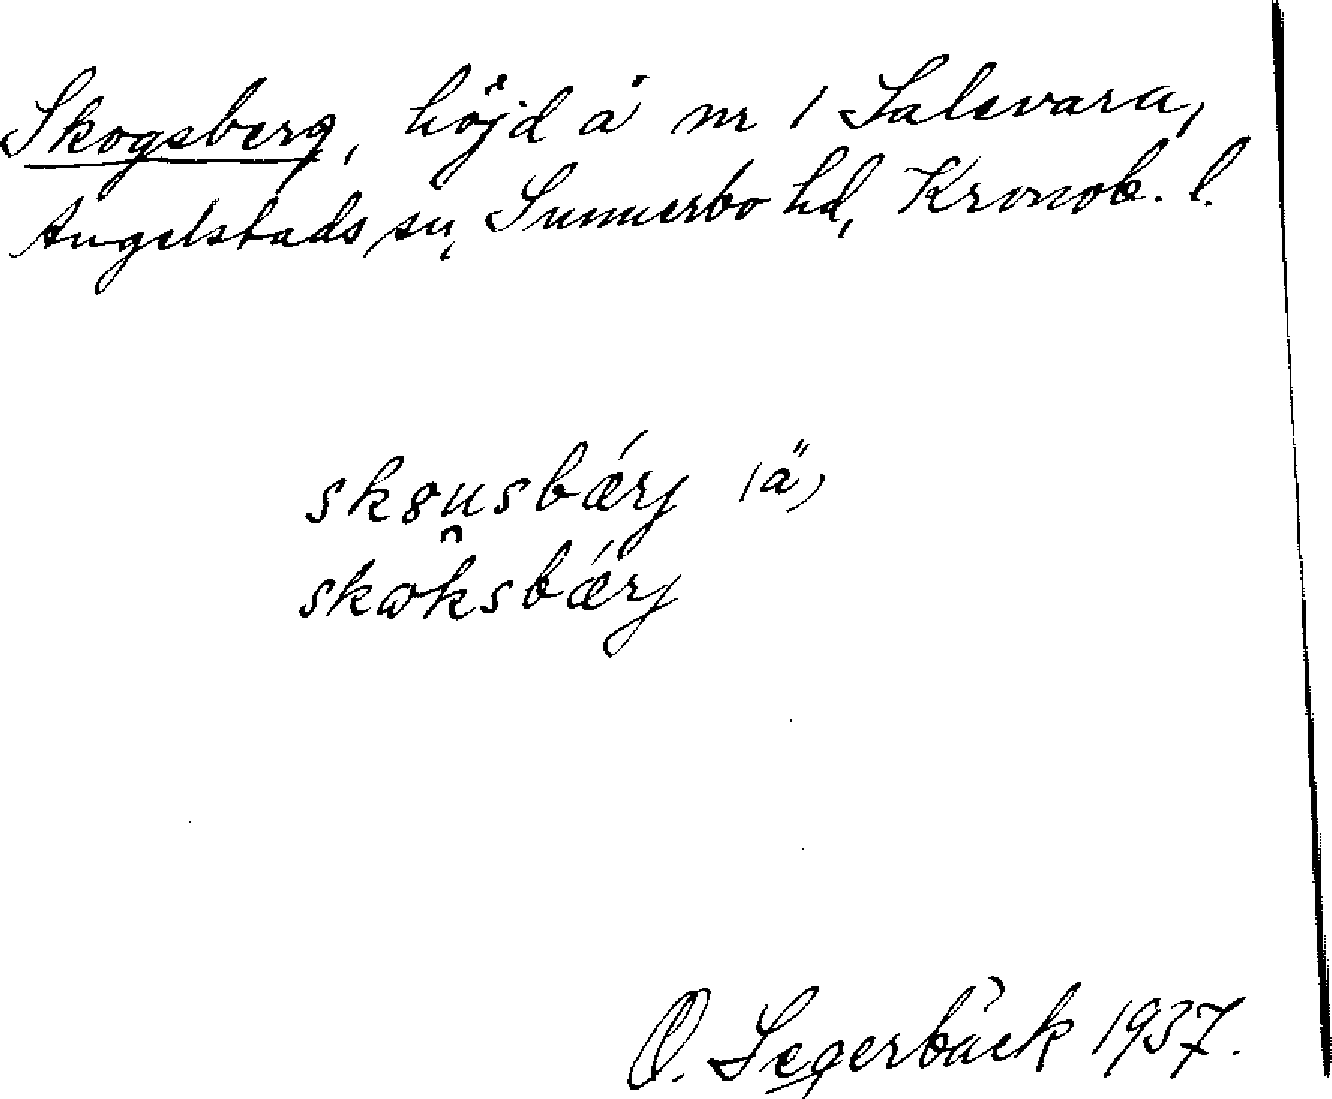 Skogsberg, höjd å nr 1 Salsvara,
Angelstads sn, Sunnerbo hd, Kronob. l.
skɷu̯sbǽrj (ä)
skɷksbǽrj
O. Segerbäck 1937.